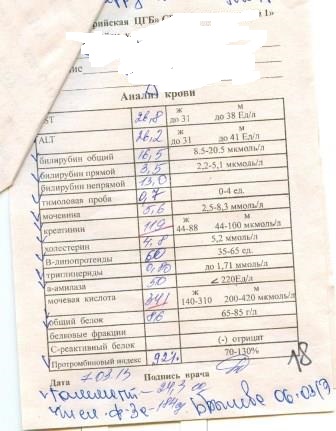 рийская ЦГБ»
ие
Анализ крови
ж м
ST 26,8 до 31 до 38 Ед/л
ж м
ALT 26,2 до 31 до 41 Ед/л
билирубин общий 16,5 8.5-20.5 мкмоль/л
билирубин прямой 3,5 2,2-5,1 мкмоль/л
билирубин непрямой 13,0
тимоловая проба 0,7 0-4 ед.
мочевина 5,6 2,5-8,3 ммоль/л
ж м
креатинин 119 44-88 44-100 мкмоль/л
холестерин 4,8 5,2 ммоль/л
В-липопротеиды 60 35-65 ед.
триглицериды 0,80 до 1,71 ммоль/л
а-амилаза 50 ∠ 220Ед/л
ж м
мочевая кислота 341 140-310 200-420 мкмоль/л
общий белок 86 65-85 г/л
белковые фракции
С-реактивный белок (-) отрицат
Протромбиновый индекс 92% 70-130%
Дата 7.03.13 Подпись врача
18
06.03.13